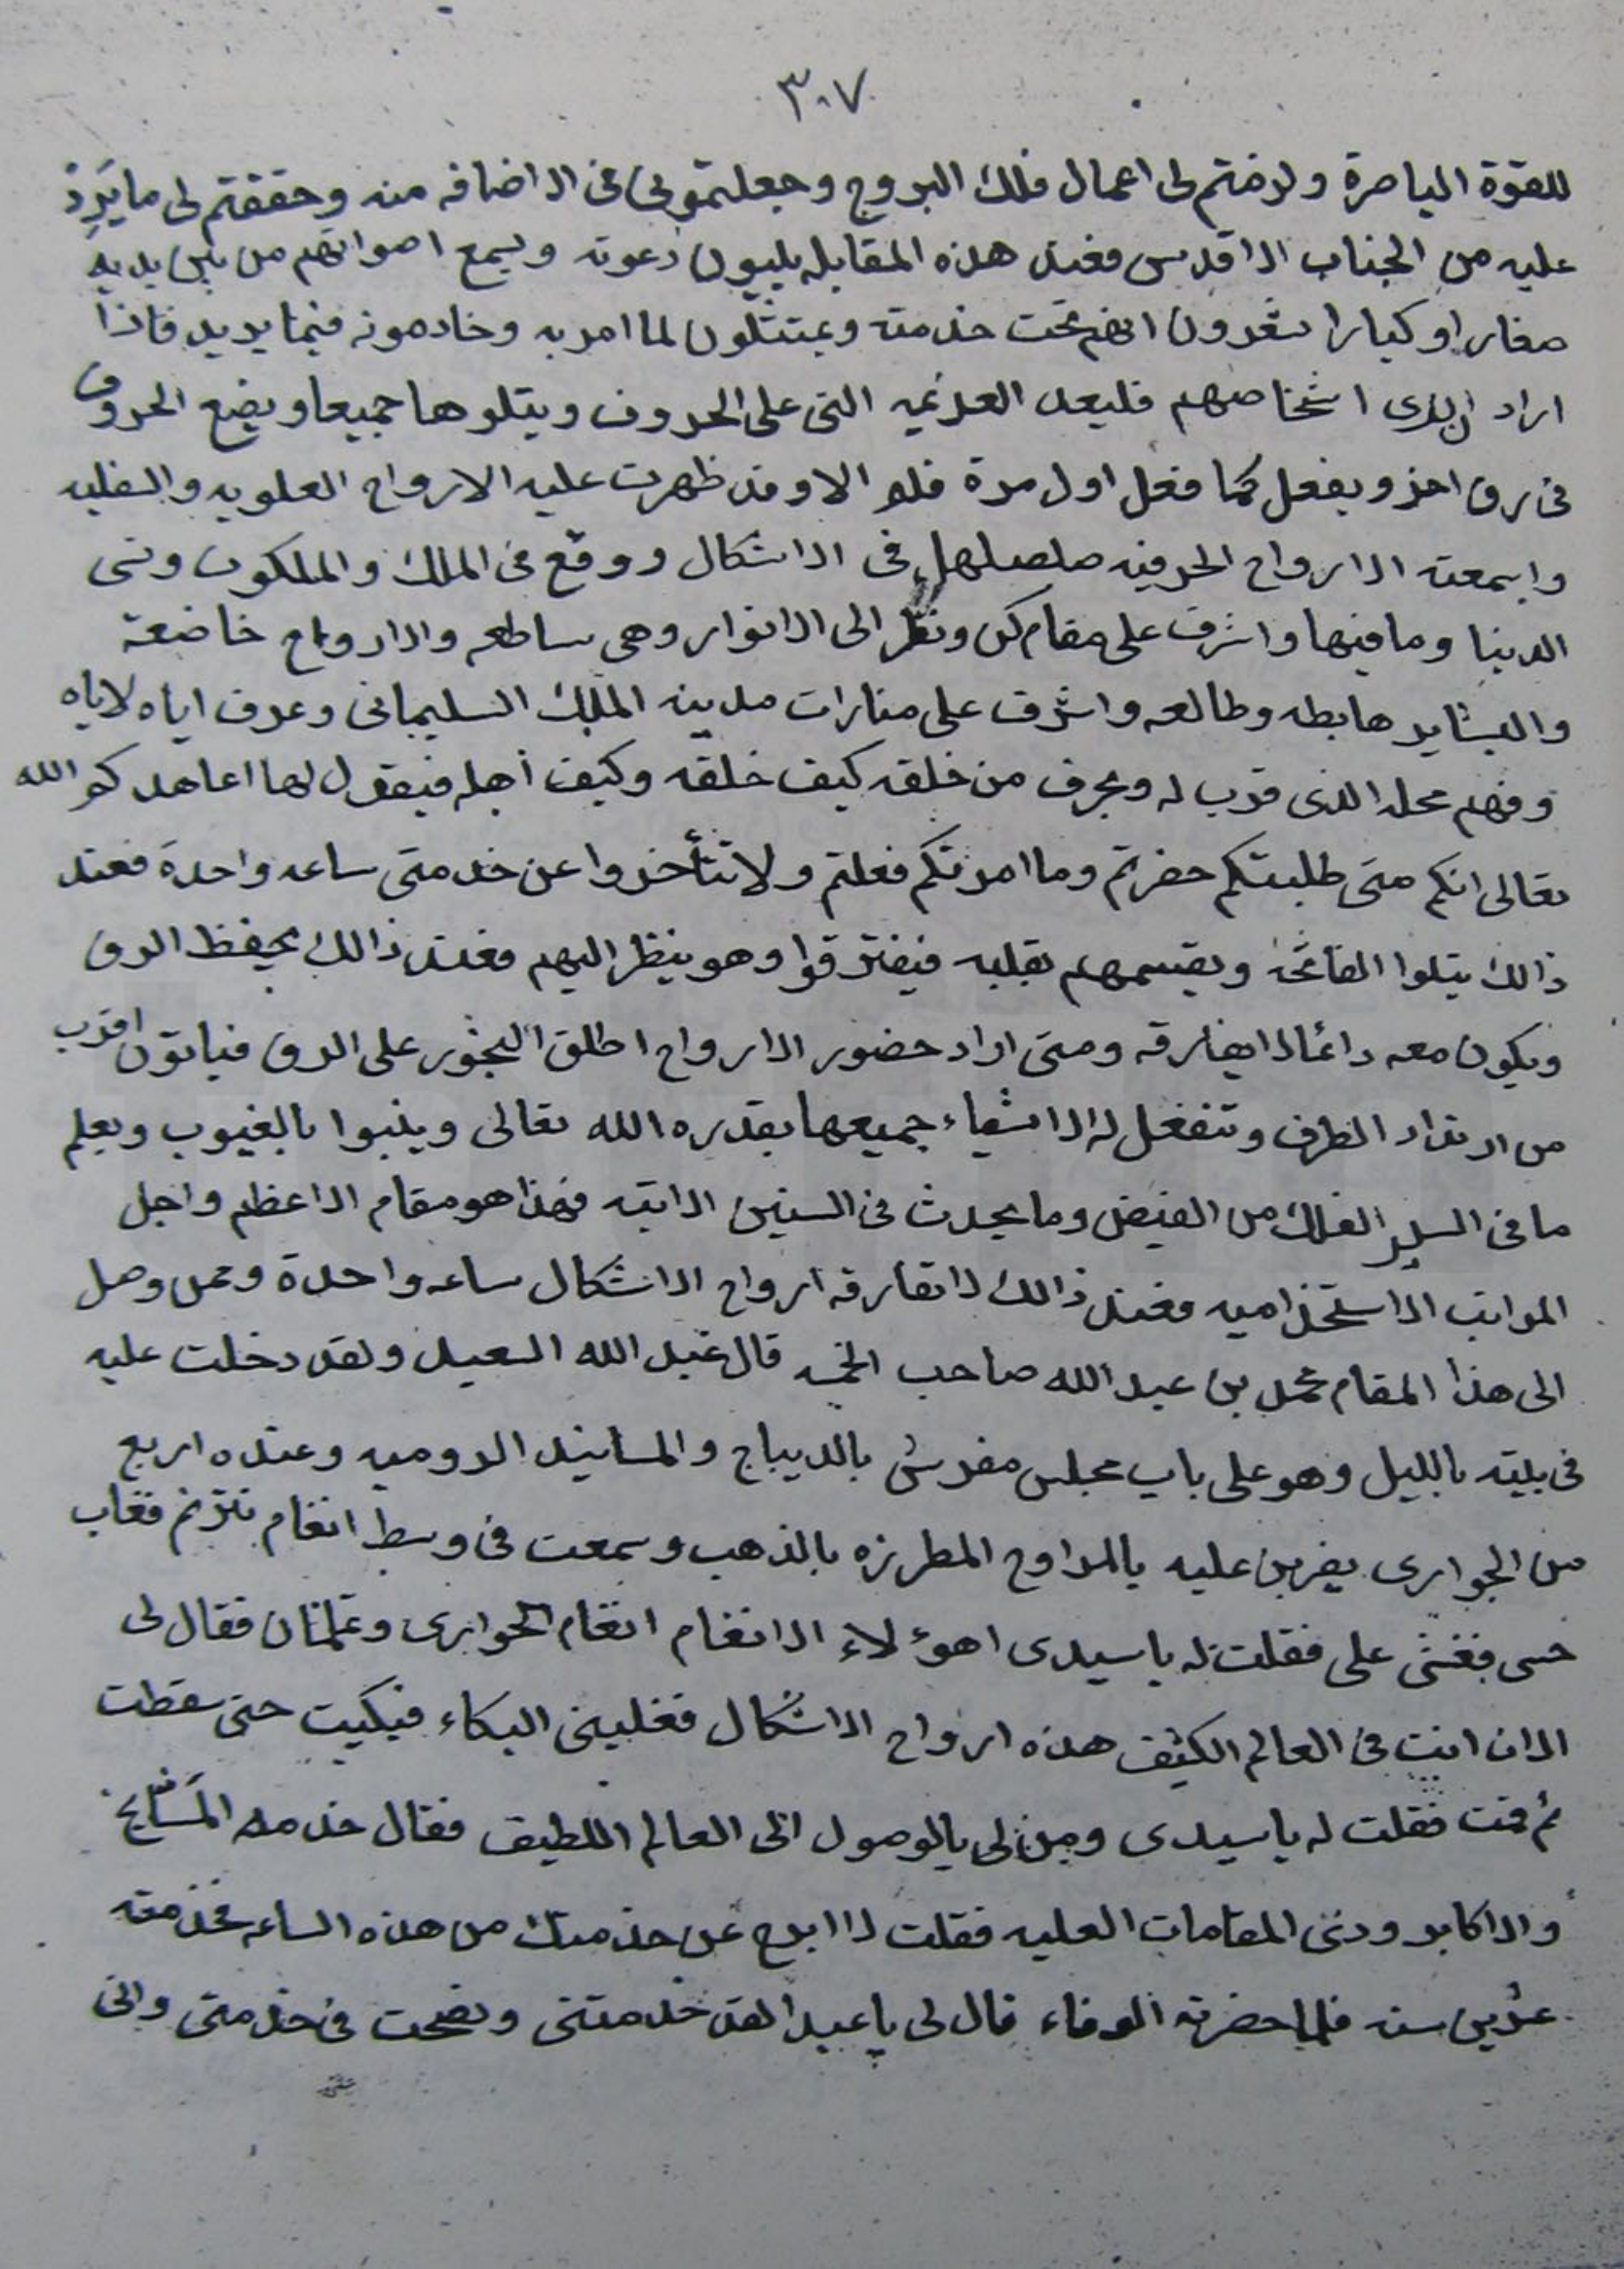 ٣٠٧
للقوة الباصرة ولرضتم لى اعمال فلك البروج وجعلتمونى فى الاضافه منه وحققتم لى ما يَرِدُ
عليه من الجناب الاقدس فعند هذه المقابله يلبيون دعوته ويسمع اصواتهم من بين يديه
صغارا وكبارا انهم تحت خدمته ويمتثلون لما امر به وخادمونه فيما يريد فاذا
اراد ان يرى اشخاصهم فليعد العزيمه التى على الحروف ويتلوها جميعا ويضع الحروف
فى رق اخر ويفعل كما فعل اول مرة فلم الا وقد ظهرت عليه الارواح العلويه والسفليه
واسمعته الارواح الحرفيه صلصلها فى الاشكال ووقع فى الملك والملكوت ونسى
الدينا وما فيها واشرف على مقام كن ونظر الى الانوار وهى ساطعه والارواح خاضعة
والبشاير هابطه وطالعه واشرف على منارات مدينه الملك السليمانى وعرف اياه لاياه
وفهم محله الذى قرب له وعرف من خلقه كيف خلقه وكيف اجله فيقول لها اعاهدكم الله
تعالى انكم متى طلبتكم حضرتم وما امرتكم فعلتم ولا تتأخروا عن خدمتى ساعه واحدة فعند
ذالك يتلوا الفاتحة ويقسمهم بقلبه فيفترقوا وهو ينظر اليهم فعند ذالك يحفظ الرق
ويكون معه دائما لا يفارقه ومتى اراد حضور الارواح اطلق البخور على الرق فياتون اقرب
من ارتداد الطرف وتنفعل له الاشياء جميعها بقدره الله تعالى وينبوا بالغيوب ويعلم
ما فى السير الفلك من الفيض وما يحدث فى السنين الاتيه فهذا هو مقام الاعظم واجل
المراتب الاستخداميه فعند ذالك لا تفارقه ارواح الاشكال ساعه واحدة وممن وصل
الى هذا المقام محمد بن عبد الله صاحب قال عبد الله السعيد ولقد دخلت عليه
فى بيته بالليل وهو على باب مجلس مفرش بالديباج والمسانيد الروميه وعنده اربع
من الجوارى يضربن عليه بالمراوح المطرزه بالذهب وسمعت فى وسط انغام تترنم فغاب
حسى فغشى على فقلت له يا سيدى اهؤلاء الانغام انغام الجوارى وغلمان فقال لى
الان انت فى العالم الكثيف هذه ارواح الاشكال فغلبنى البكاء فبكيت حتى سقطت
ثم قمت فقلت له يا سيدى ومن لى بالوصول الى العالم اللطيف فقال خدمه المشايخ
والاكابر ودنى المقامات العليه فقلت لا ابرح عن خدمتك من هذه الساعه فخدمته
عشرين سنه فلما حضرته الوفاء قال لى يا عبد الله لقد خدمتنى ونصحت فى خدمتى وانى